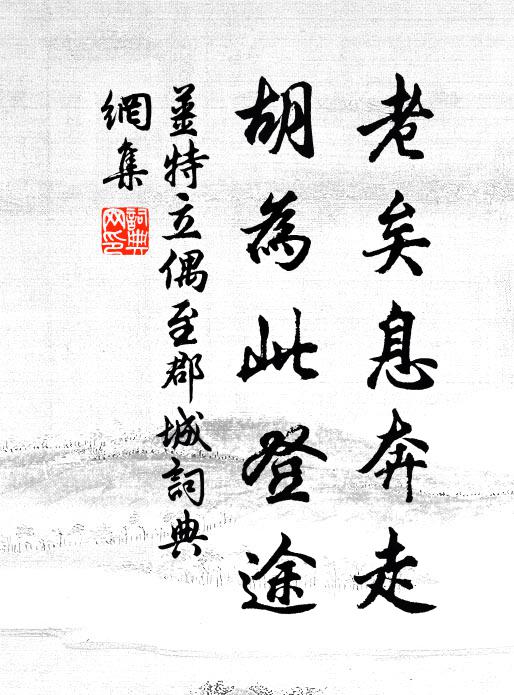 老矣息奔走
胡為此登途
薑特立偶至郡城詞典
網集
詞典
网印